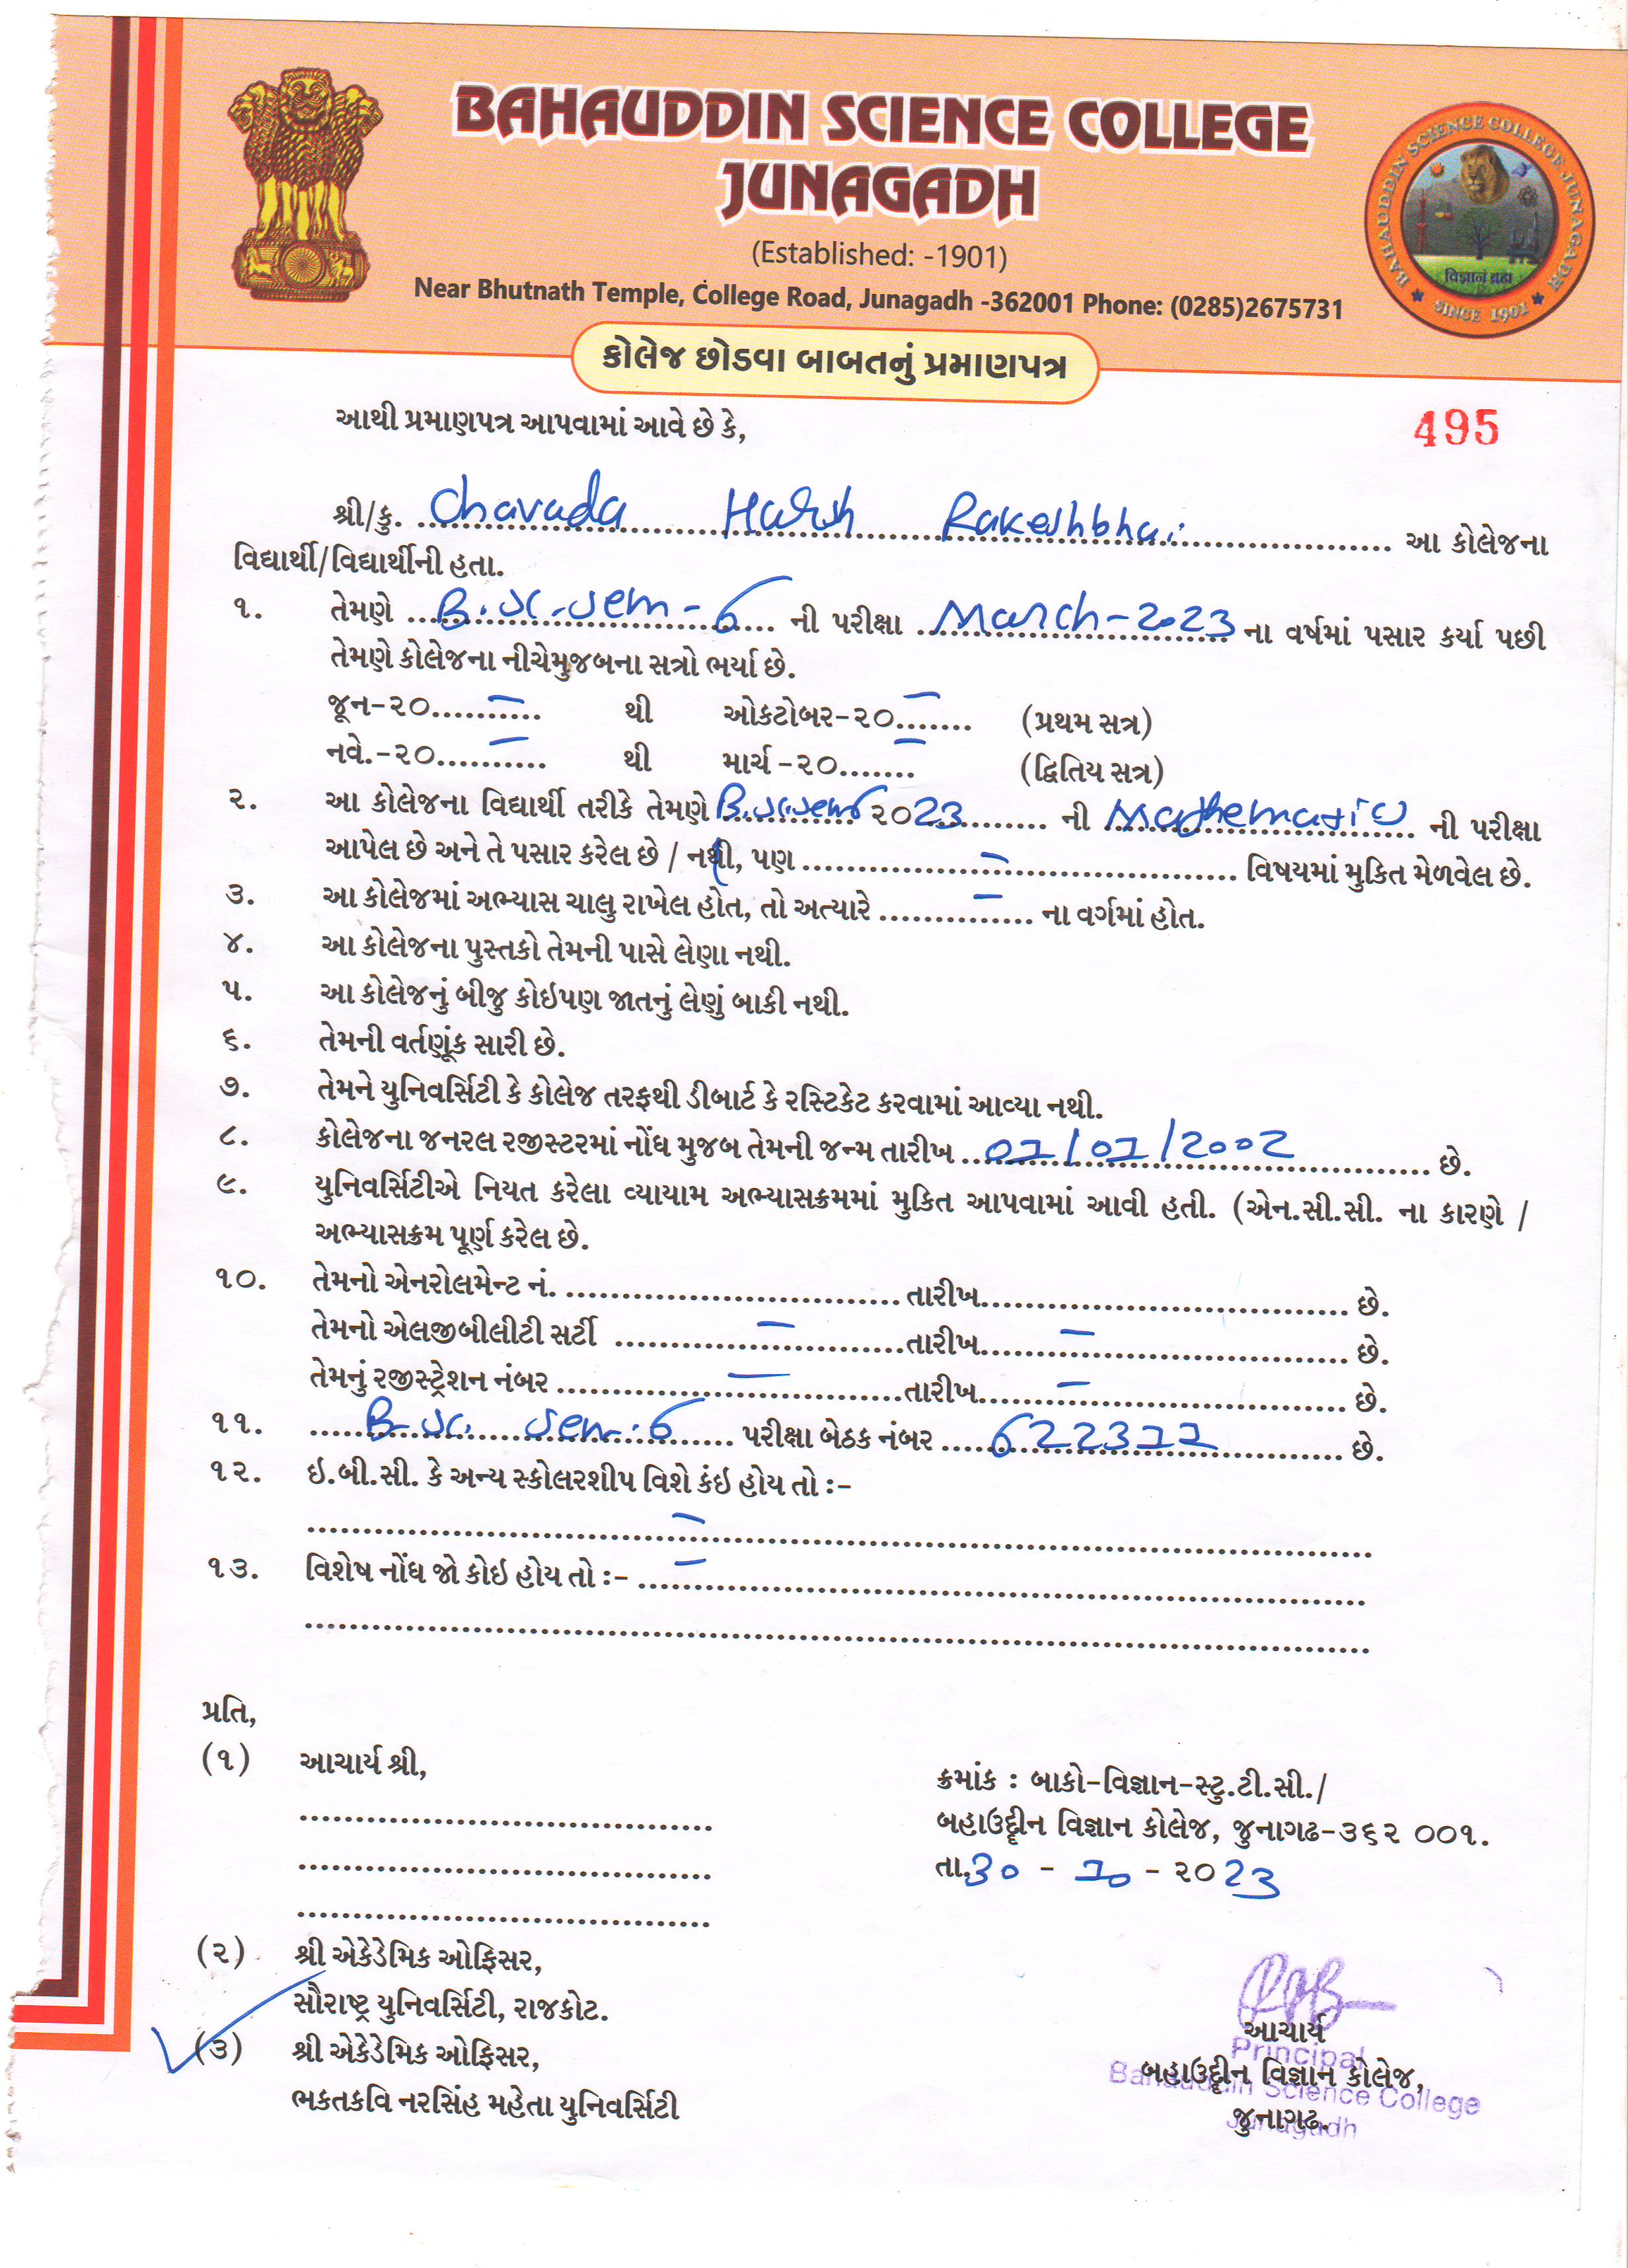 BAHAUDDIN SCIENCE COLLEGE
JUNAGADH
(Established: -1901)
Near Bhutnath Temple, College Road, Junagadh -362001 Phone: (0285)2675731
BAHAUDDIN SCIENCE COLLEGE, JUNAGADH
विज्ञानं ब्रह्म
SINCE 1901
કોલેજ છોડવા બાબતનું પ્રમાણપત્ર
આથી પ્રમાણપત્ર આપવામાં આવે છે કે,
495
શ્રી/કુ. Chavada Harsh Rakeshbhai આ કોલેજના
વિદ્યાર્થી/વિદ્યાર્થીની હતા.
૧. તેમણે B.sc.sem-6 ની પરીક્ષા March-2023 ના વર્ષમાં પસાર કર્યા પછી
તેમણે કોલેજના નીચેમુજબના સત્રો ભર્યા છે.
જૂન-૨૦.....–..... થી ઓક્ટોબર-૨૦...–.... (પ્રથમ સત્ર)
નવે.-૨૦.....–..... થી માર્ચ -૨૦...–.... (દ્વિતિય સત્ર)
૨. આ કોલેજના વિદ્યાર્થી તરીકે તેમણે B.sc.sem6 ૨૦23 ની Mathematic ની પરીક્ષા
આપેલ છે અને તે પસાર કરેલ છે / નથી, પણ ........–........ વિષયમાં મુકિત મેળવેલ છે.
૩. આ કોલેજમાં અભ્યાસ ચાલુ રાખેલ હોત, તો અત્યારે ......–...... ના વર્ગમાં હોત.
૪. આ કોલેજના પુસ્તકો તેમની પાસે લેણા નથી.
૫. આ કોલેજનું બીજુ કોઇપણ જાતનું લેણું બાકી નથી.
૬. તેમની વર્તણૂંક સારી છે.
૭. તેમને યુનિવર્સિટી કે કોલેજ તરફથી ડીબાર્ટ કે રસ્ટિકેટ કરવામાં આવ્યા નથી.
૮. કોલેજના જનરલ રજીસ્ટરમાં નોંધ મુજબ તેમની જન્મ તારીખ 01/01/2002 છે.
૯. યુનિવર્સિટીએ નિયત કરેલા વ્યાયામ અભ્યાસક્રમમાં મુકિત આપવામાં આવી હતી. (એન.સી.સી. ના કારણે /
અભ્યાસક્રમ પૂર્ણ કરેલ છે.
૧૦. તેમનો એનરોલમેન્ટ નં. ................ તારીખ................ છે.
તેમનો એલજીબીલીટી સર્ટી ........–........ તારીખ......–...... છે.
તેમનું રજીસ્ટ્રેશન નંબર ........–........ તારીખ......–...... છે.
૧૧. B.sc. sem.6 પરીક્ષા બેઠક નંબર 622311 છે.
૧૨. ઇ.બી.સી. કે અન્ય સ્કોલરશીપ વિશે કંઇ હોય તો :-
................–................
૧૩. વિશેષ નોંધ જો કોઇ હોય તો :- ..–................
................................
પ્રતિ,
(૧) આચાર્ય શ્રી,
ક્રમાંક : બાકો-વિજ્ઞાન-સ્ટુ.ટી.સી./
બહાઉદ્દીન વિજ્ઞાન કોલેજ, જુનાગઢ-૩૬૨ ૦૦૧.
તા.30 - 10 - ૨૦23
(૨) શ્રી એકેડેમિક ઓફિસર,
સૌરાષ્ટ્ર યુનિવર્સિટી, રાજકોટ.
(૩) શ્રી એકેડેમિક ઓફિસર,
ભકતકવિ નરસિંહ મહેતા યુનિવર્સિટી
આચાર્ય
Principal
બહાઉદ્દીન વિજ્ઞાન કોલેજ,
Bahauddin Science College
જુનાગઢ.
Junagadh